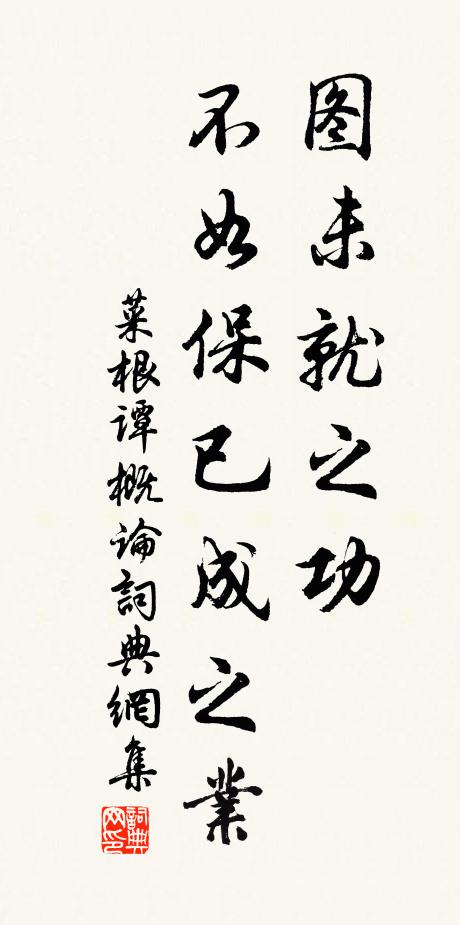 图未就之功
不如保已成之业
菜根谭概论詞典網集
詞典网印